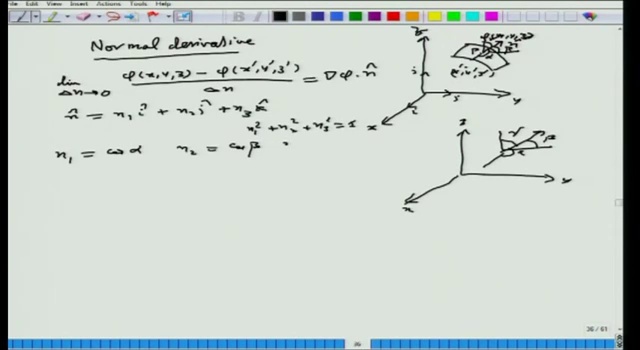 File Edit View Insert Actions Tools Help
Normal derivative
lim Δn→0 (φ(x,y,z) − φ(x',y',z')) / Δn = ∇φ·n̂
n̂ = n₁ î + n₂ ĵ + n₃ k̂
n₁² + n₂² + n₃² = 1
n₁ = cos α n₂ = cos β
z
φ(x,y,z)
(x',y',z')
y
x
z
γ
β
α
y
x
36 / 61
36